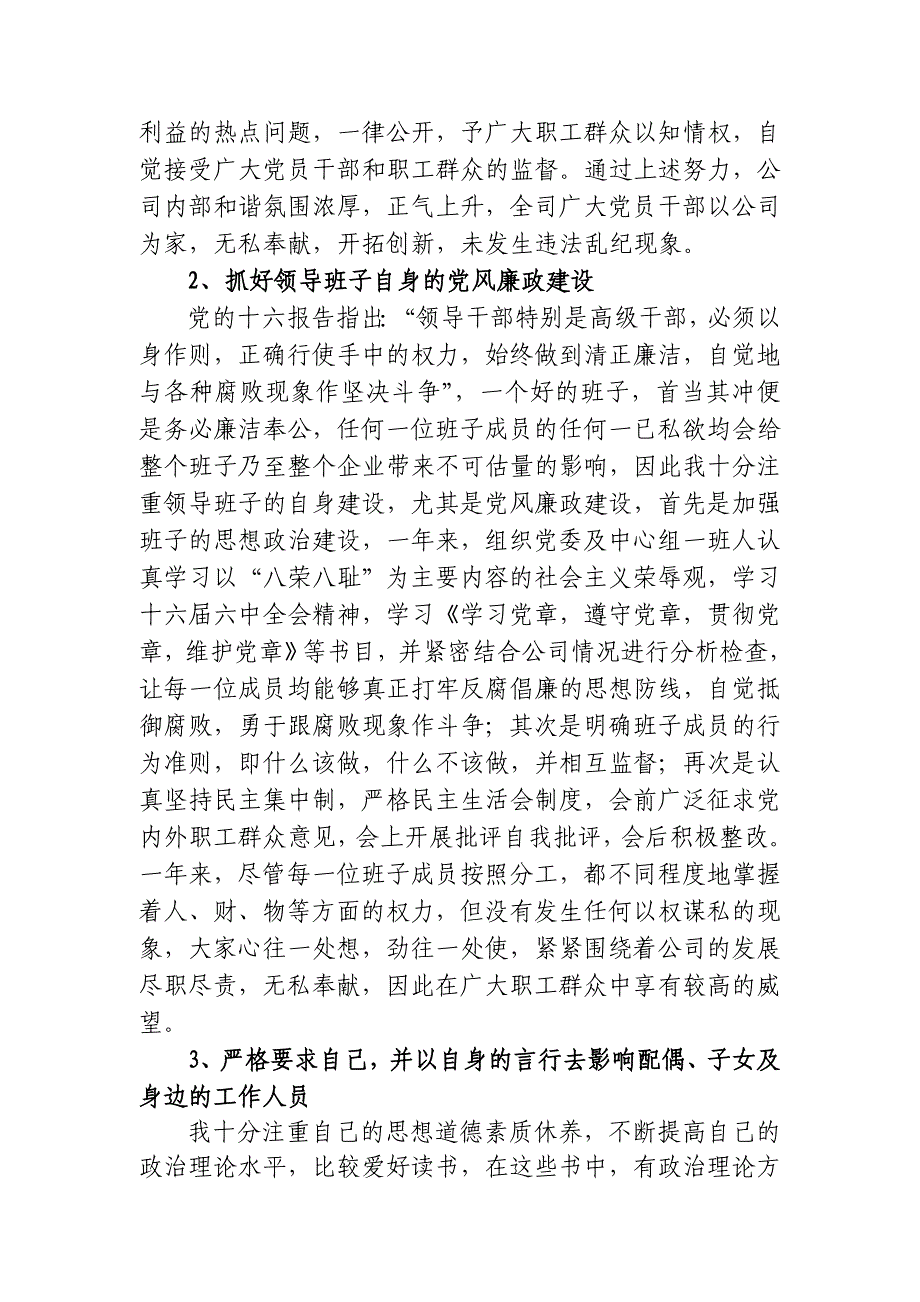 利益的热点问题，一律公开，予广大职工群众以知情权，自
觉接受广大党员干部和职工群众的监督。通过上述努力，公
司内部和谐氛围浓厚，正气上升，全司广大党员干部以公司
为家，无私奉献，开拓创新，未发生违法乱纪现象。
2、抓好领导班子自身的党风廉政建设
党的十六报告指出：“领导干部特别是高级干部，必须以
身作则，正确行使手中的权力，始终做到清正廉洁，自觉地
与各种腐败现象作坚决斗争”，一个好的班子，首当其冲便
是务必廉洁奉公，任何一位班子成员的任何一已私欲均会给
整个班子乃至整个企业带来不可估量的影响，因此我十分注
重领导班子的自身建设，尤其是党风廉政建设，首先是加强
班子的思想政治建设，一年来，组织党委及中心组一班人认
真学习以“八荣八耻”为主要内容的社会主义荣辱观，学习
十六届六中全会精神，学习《学习党章，遵守党章，贯彻党
章，维护党章》等书目，并紧密结合公司情况进行分析检查，
让每一位成员均能够真正打牢反腐倡廉的思想防线，自觉抵
御腐败，勇于跟腐败现象作斗争；其次是明确班子成员的行
为准则，即什么该做，什么不该做，并相互监督；再次是认
真坚持民主集中制，严格民主生活会制度，会前广泛征求党
内外职工群众意见，会上开展批评自我批评，会后积极整改。
一年来，尽管每一位班子成员按照分工，都不同程度地掌握
着人、财、物等方面的权力，但没有发生任何以权谋私的现
象，大家心往一处想，劲往一处使，紧紧围绕着公司的发展
尽职尽责，无私奉献，因此在广大职工群众中享有较高的威
望。
3、严格要求自己，并以自身的言行去影响配偶、子女及
身边的工作人员
我十分注重自己的思想道德素质休养，不断提高自己的
政治理论水平，比较爱好读书，在这些书中，有政治理论方